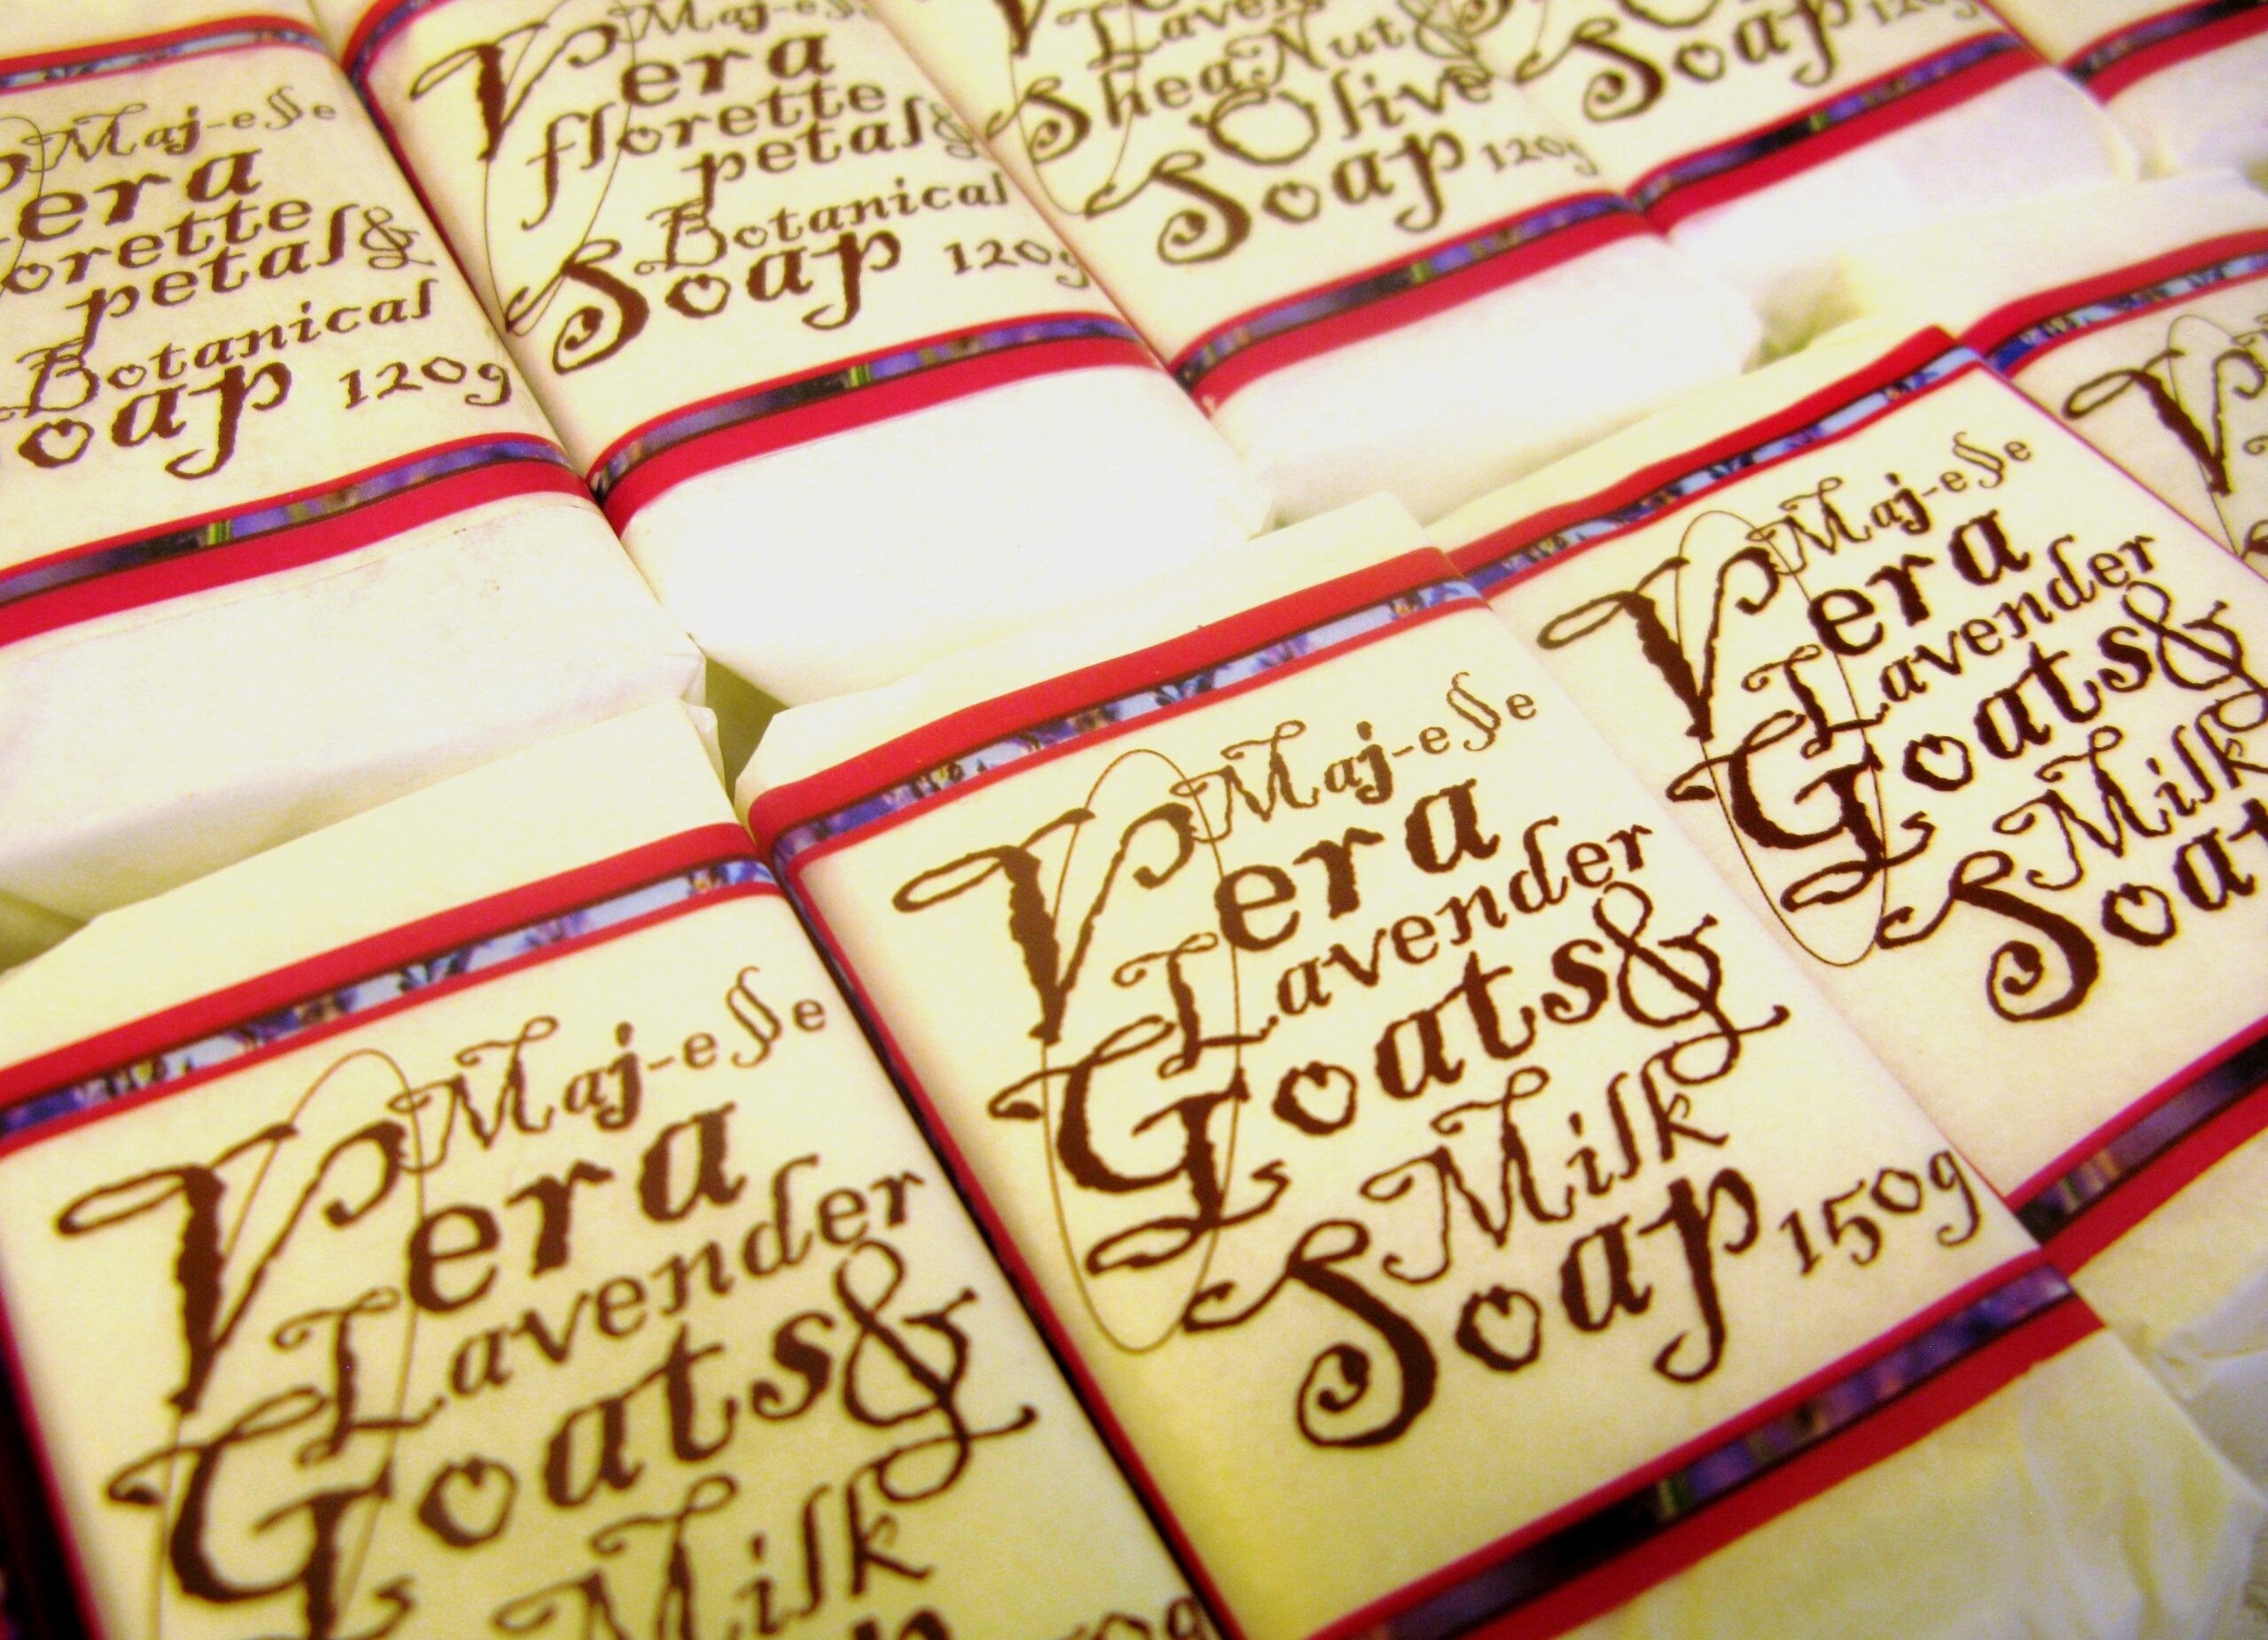 Maj-esse
era
orette
petals &
Botanical
oap 120g
Maj-esse
Vera
florette
petals &
Botanical
Soap 120g
Laven
Shea Nut &
Olive
Soap 120g
Soap 120g
Maj-esse
Vera
Lavender
Goats &
Milk
Maj-esse
Vera
Lavender
Goats &
Milk
Soap 150g
Maj-esse
Vera
Lavender
Goats &
Milk
Soap
V